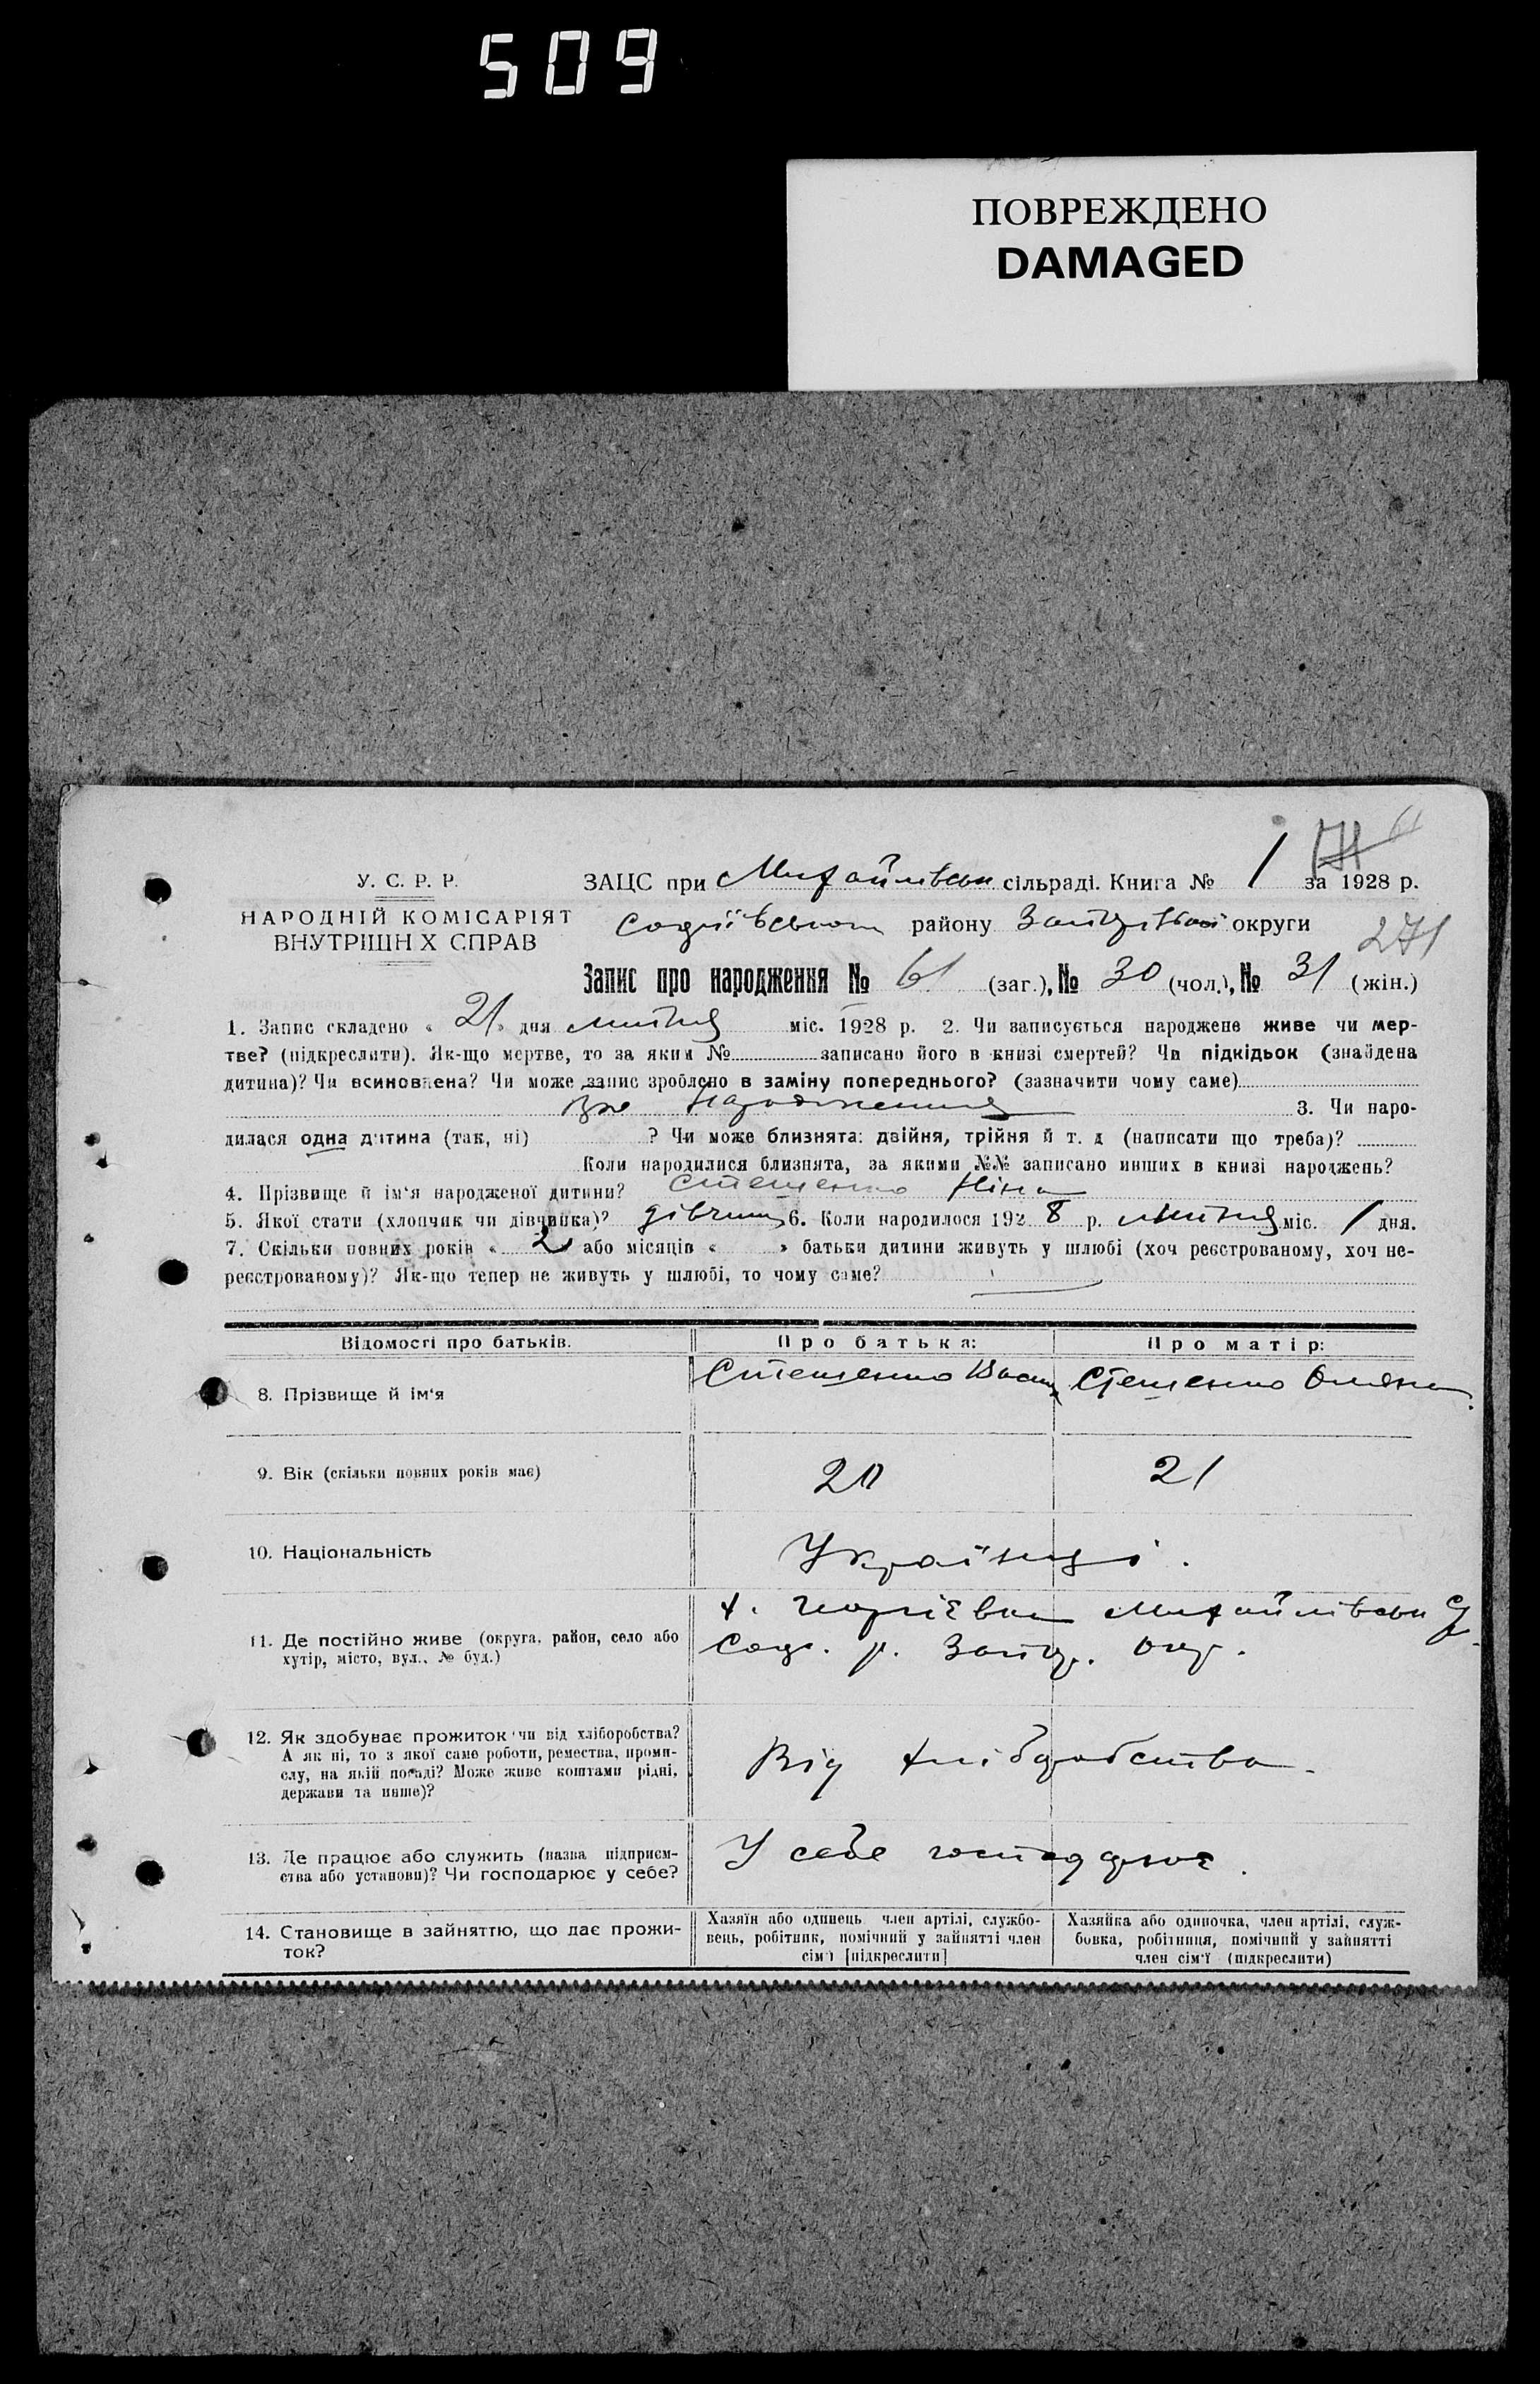 509
ПОВРЕЖДЕНО
DAMAGED
171 61
У. С. Р. Р.
НАРОДНІЙ КОМІСАРІЯТ
ВНУТРІШН Х СПРАВ
ЗАЦС при Михайлівськ сільраді. Книга № 1 за 1928 р.
Софіївського району Запорізької округи
271
Запис про народження № 61 (заг.), № 30 (чол.), № 31 (жін.)
1. Запис складено « 21 » дня липня міс. 1928 р. 2. Чи записується народжене живе чи мер-
тве? (підкреслити). Як-що мертве, то за яким № записано його в книзі смертей? Чи підкідьок (знайдена
дитина)? Чи всиновлена? Чи може запис зроблено в заміну попереднього? (зазначити чому саме)
Про народження 3. Чи наро-
дилася одна дитина (так, ні) ? Чи може близнята: двійня, трійня й т. д (написати що треба)?
Коли народилися близнята, за якими №№ записано инших в книзі народжень?
4. Прізвище й ім'я народженої дитини? Стешенко Ніна
5. Якої стати (хлопчик чи дівчинка)? дівчина 6. Коли народилося 192 8 р. липня міс. 1 дня.
7. Скільки повних років « 2 » або місяців « » батьки дитини живуть у шлюбі (хоч реєстрованому, хоч не-
реєстрованому)? Як-що тепер не живуть у шлюбі, то чому саме?
Відомості про батьків.
Про батька:
Про матір:
8. Прізвище й ім'я
Стешенко Васил
Стешенко Оляна
9. Вік (скільки повних років має)
20
21
10. Національність
Українці.
11. Де постійно живе (округа, район, село або
хутір, місто, вул., № буд.)
х. Михайлівськ С/
Соф. р. Запор. окр.
12. Як здобуває прожиток чи від хліборобства?
А як ні, то з якої саме роботи, ремества, проми-
слу, на якій посаді? Може живе коштами рідні,
держави та инше)?
Від хліборобства.
13. Де працює або служить (назва підприєм-
ства або установи)? Чи господарює у себе?
У себе господарює.
14. Становище в зайняттю, що дає прожи-
ток?
Хазяїн або одинець член артілі, службо-
вець, робітник, помічний у зайнятті член
сім'ї [підкреслити]
Хазяйка або одиночка, член артілі, служ-
бовка, робітниця, помічний у зайнятті
член сім'ї (підкреслити)